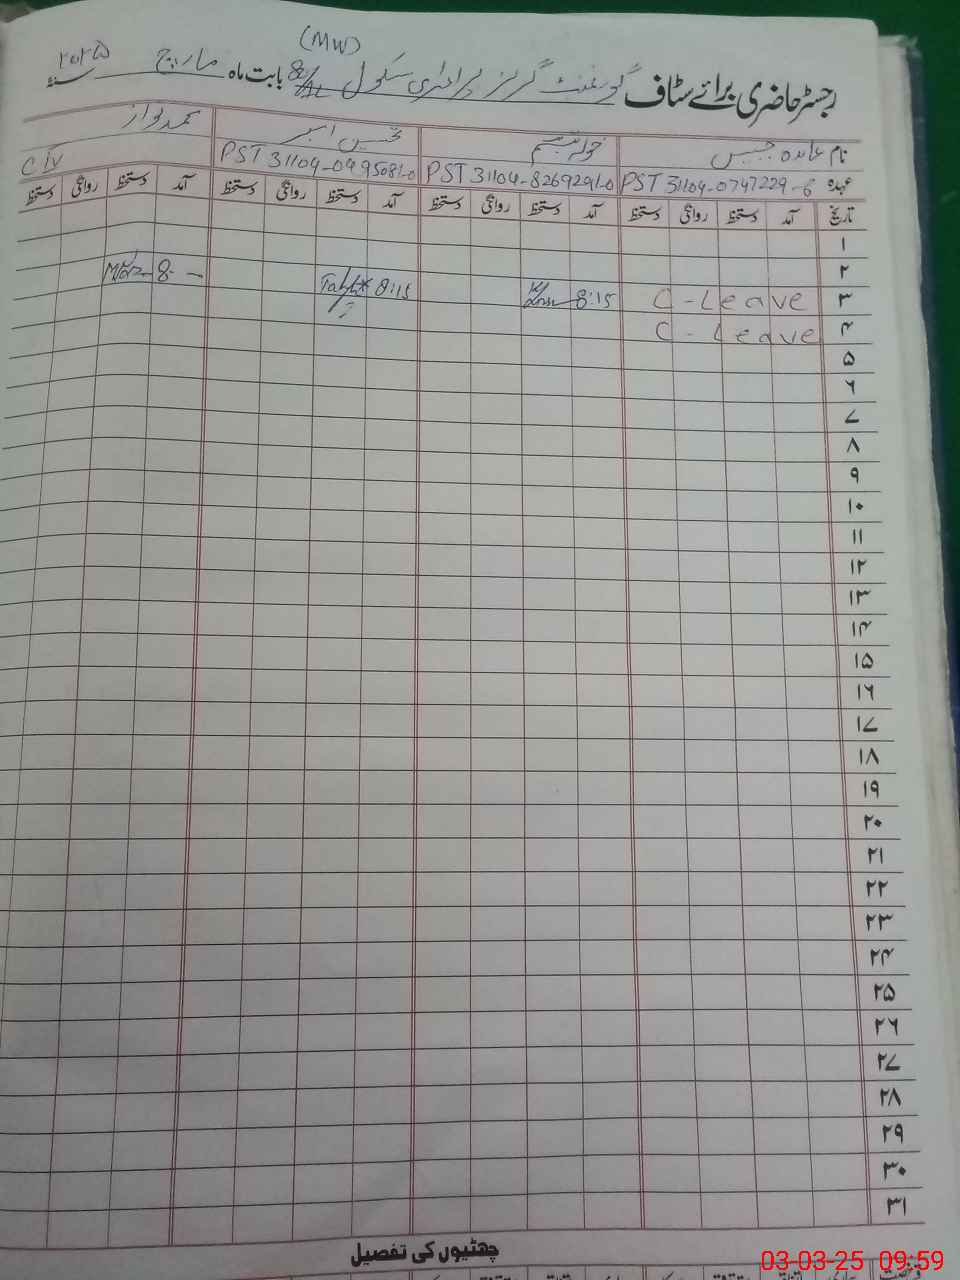 (MW)
رجسٹر حاضری برائے سٹاف گورنمنٹ گرلز پرائمری سکول بابت ماہ مارچ ۲۰۲۵
نام عابدہ خولہ تبسم تحسین محمد نواز
عہدہ PST 31104-0747229-6 PST 31104-8269291-0 PST 31104-0495081-0 CIV
تاریخ آمد دستخط روانگی دستخط آمد دستخط روانگی دستخط آمد دستخط روانگی دستخط آمد دستخط روانگی دستخط
۱
۲
۳ C-Leave 8:15 8:15 8-
۴ C-Leave
۵
۶
۷
۸
۹
۱۰
۱۱
۱۲
۱۳
۱۴
۱۵
۱۶
۱۷
۱۸
۱۹
۲۰
۲۱
۲۲
۲۳
۲۴
۲۵
۲۶
۲۷
۲۸
۲۹
۳۰
۳۱
چھٹیوں کی تفصیل
03-03-25 09:59